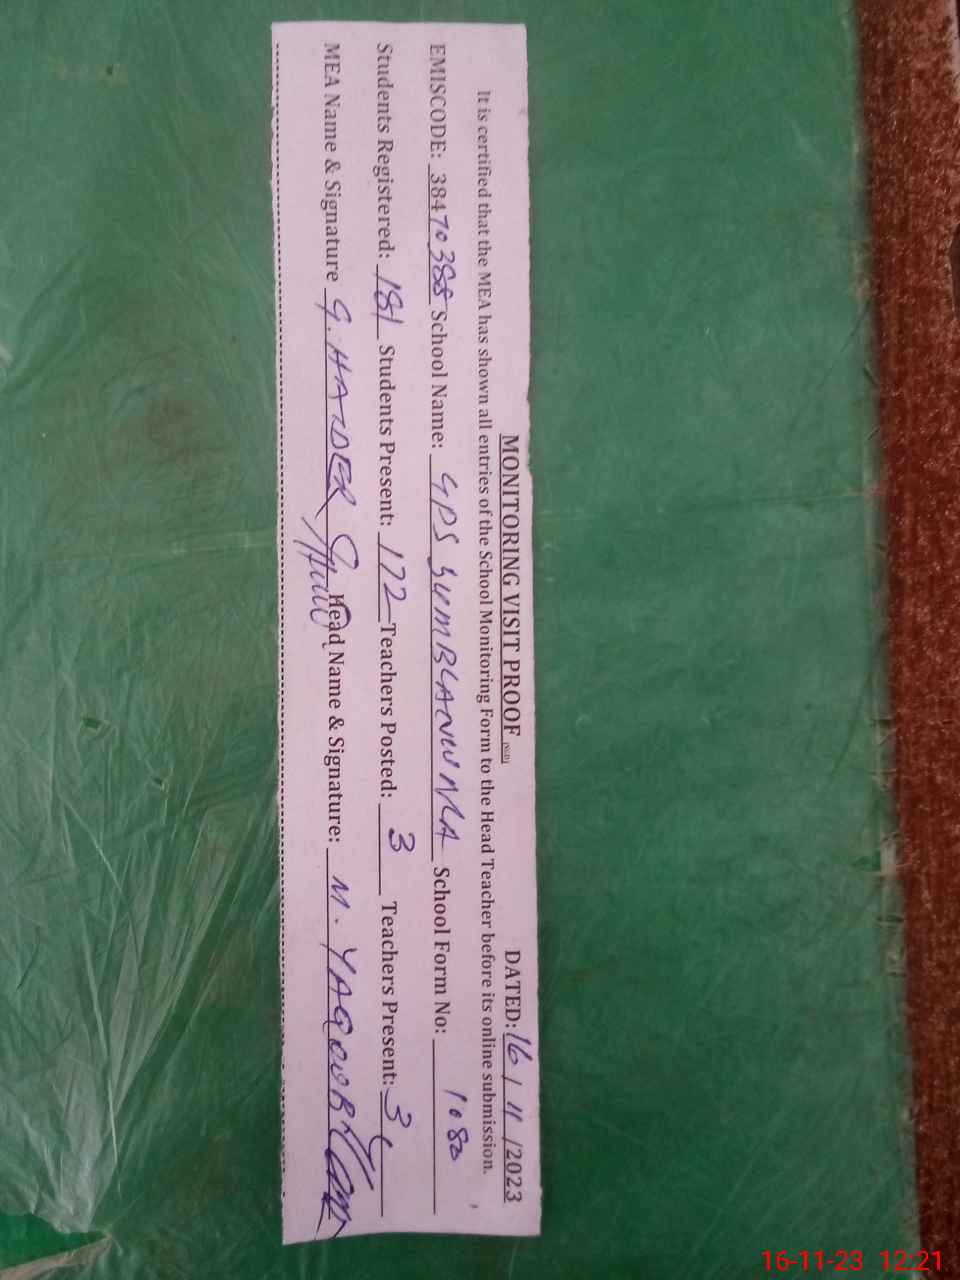 MONITORING VISIT PROOF DATED: 16 / 11 /2023
It is certified that the MEA has shown all entries of the School Monitoring Form to the Head Teacher before its online submission.
EMISCODE: 38470388 School Name: GPS SUMBLANWALA School Form No: 1080
Students Registered: 181 Students Present: 172 Teachers Posted: 3 Teachers Present: 3
MEA Name & Signature G. HAIDER Head Name & Signature: M. YAQOOB
16-11-23 12:21